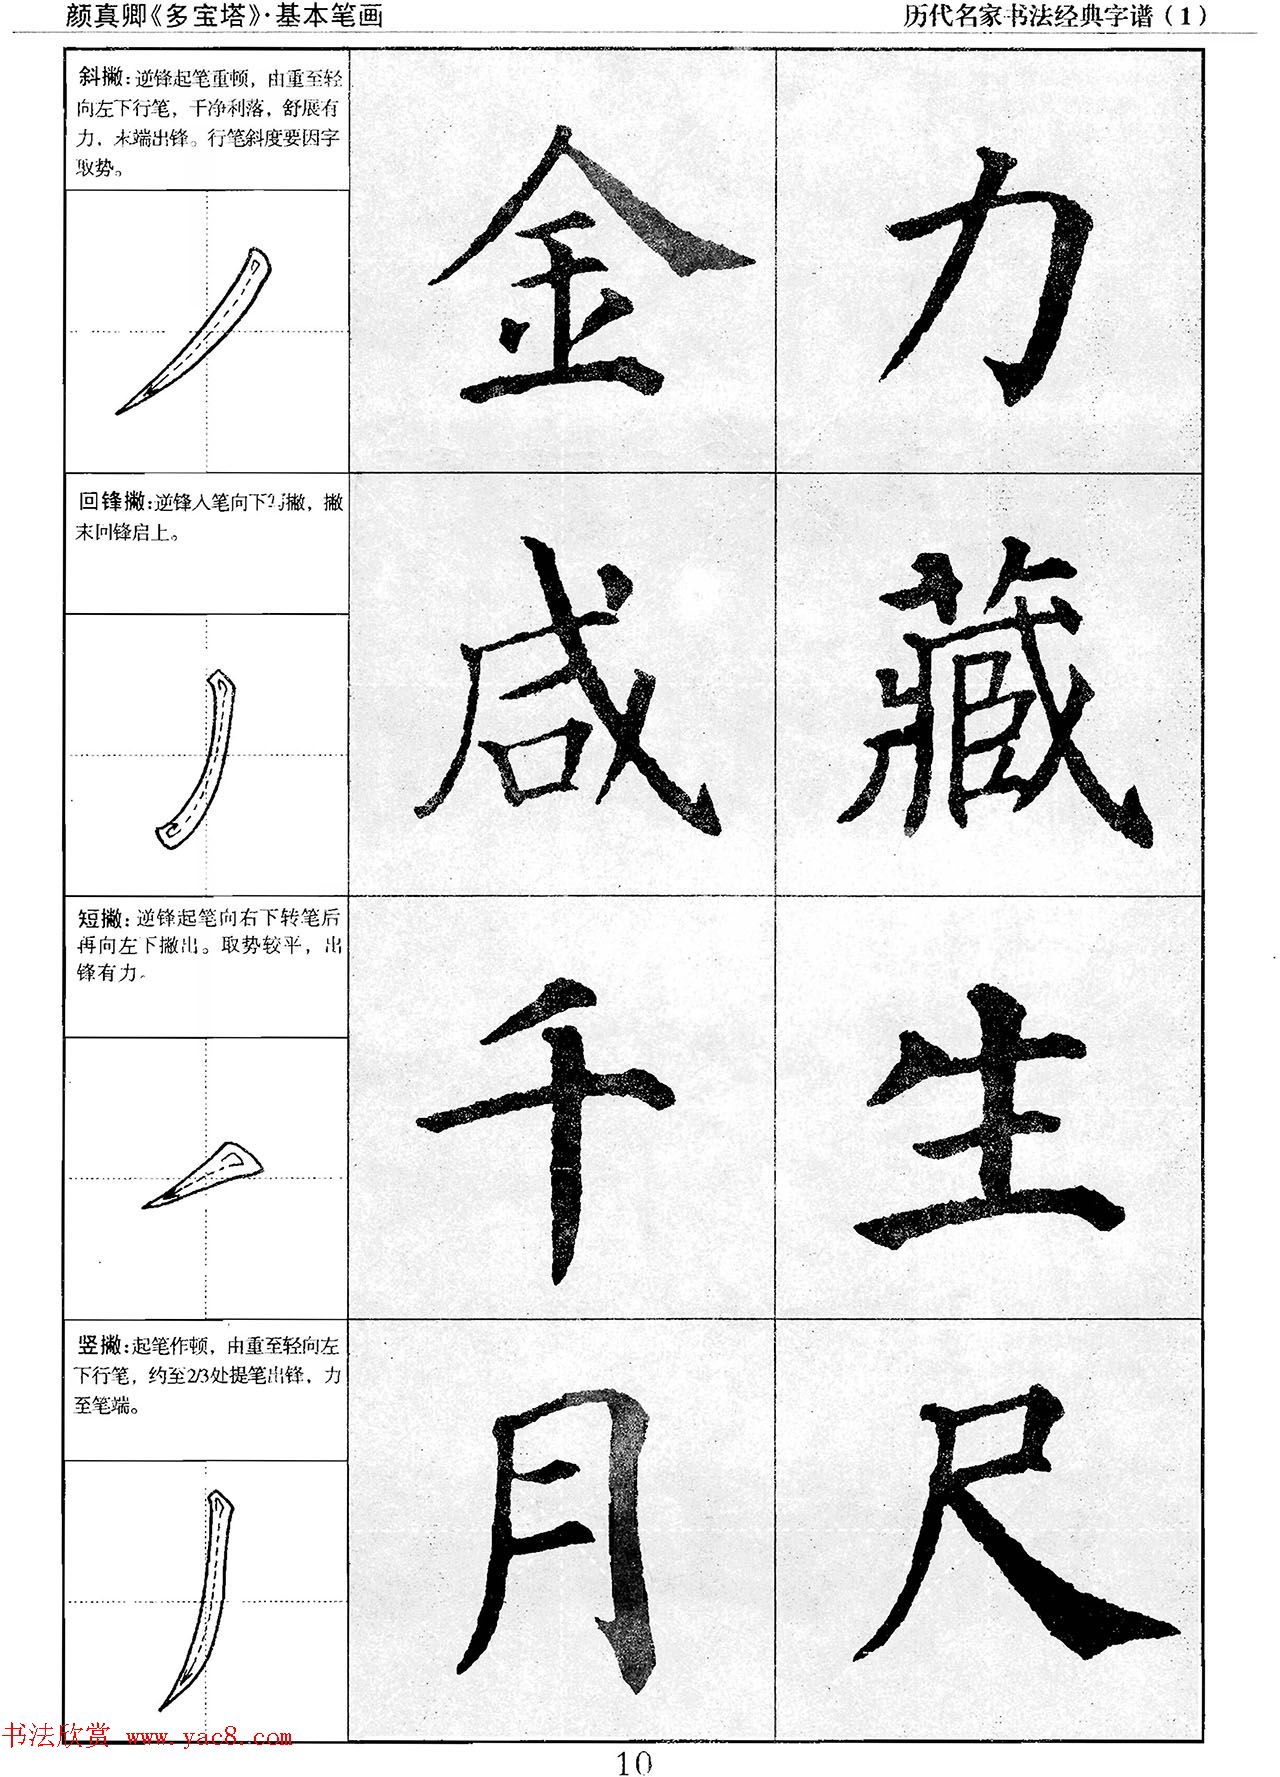 颜真卿《多宝塔》·基本笔画
历代名家书法经典字谱（1）
斜撇：逆锋起笔重顿，由重至轻
向左下行笔，干净利落，舒展有
力，末端出锋。行笔斜度要因字
取势。
金
力
回锋撇：逆锋入笔向下行撇，撇
末回锋启上。
咸
藏
短撇：逆锋起笔向右下转笔后
再向左下撇出。取势较平，出
锋有力。
千
生
竖撇：起笔作顿，由重至轻向左
下行笔，约至2/3处提笔出锋，力
至笔端。
月
尺
书法欣赏 www.yac8.com
10